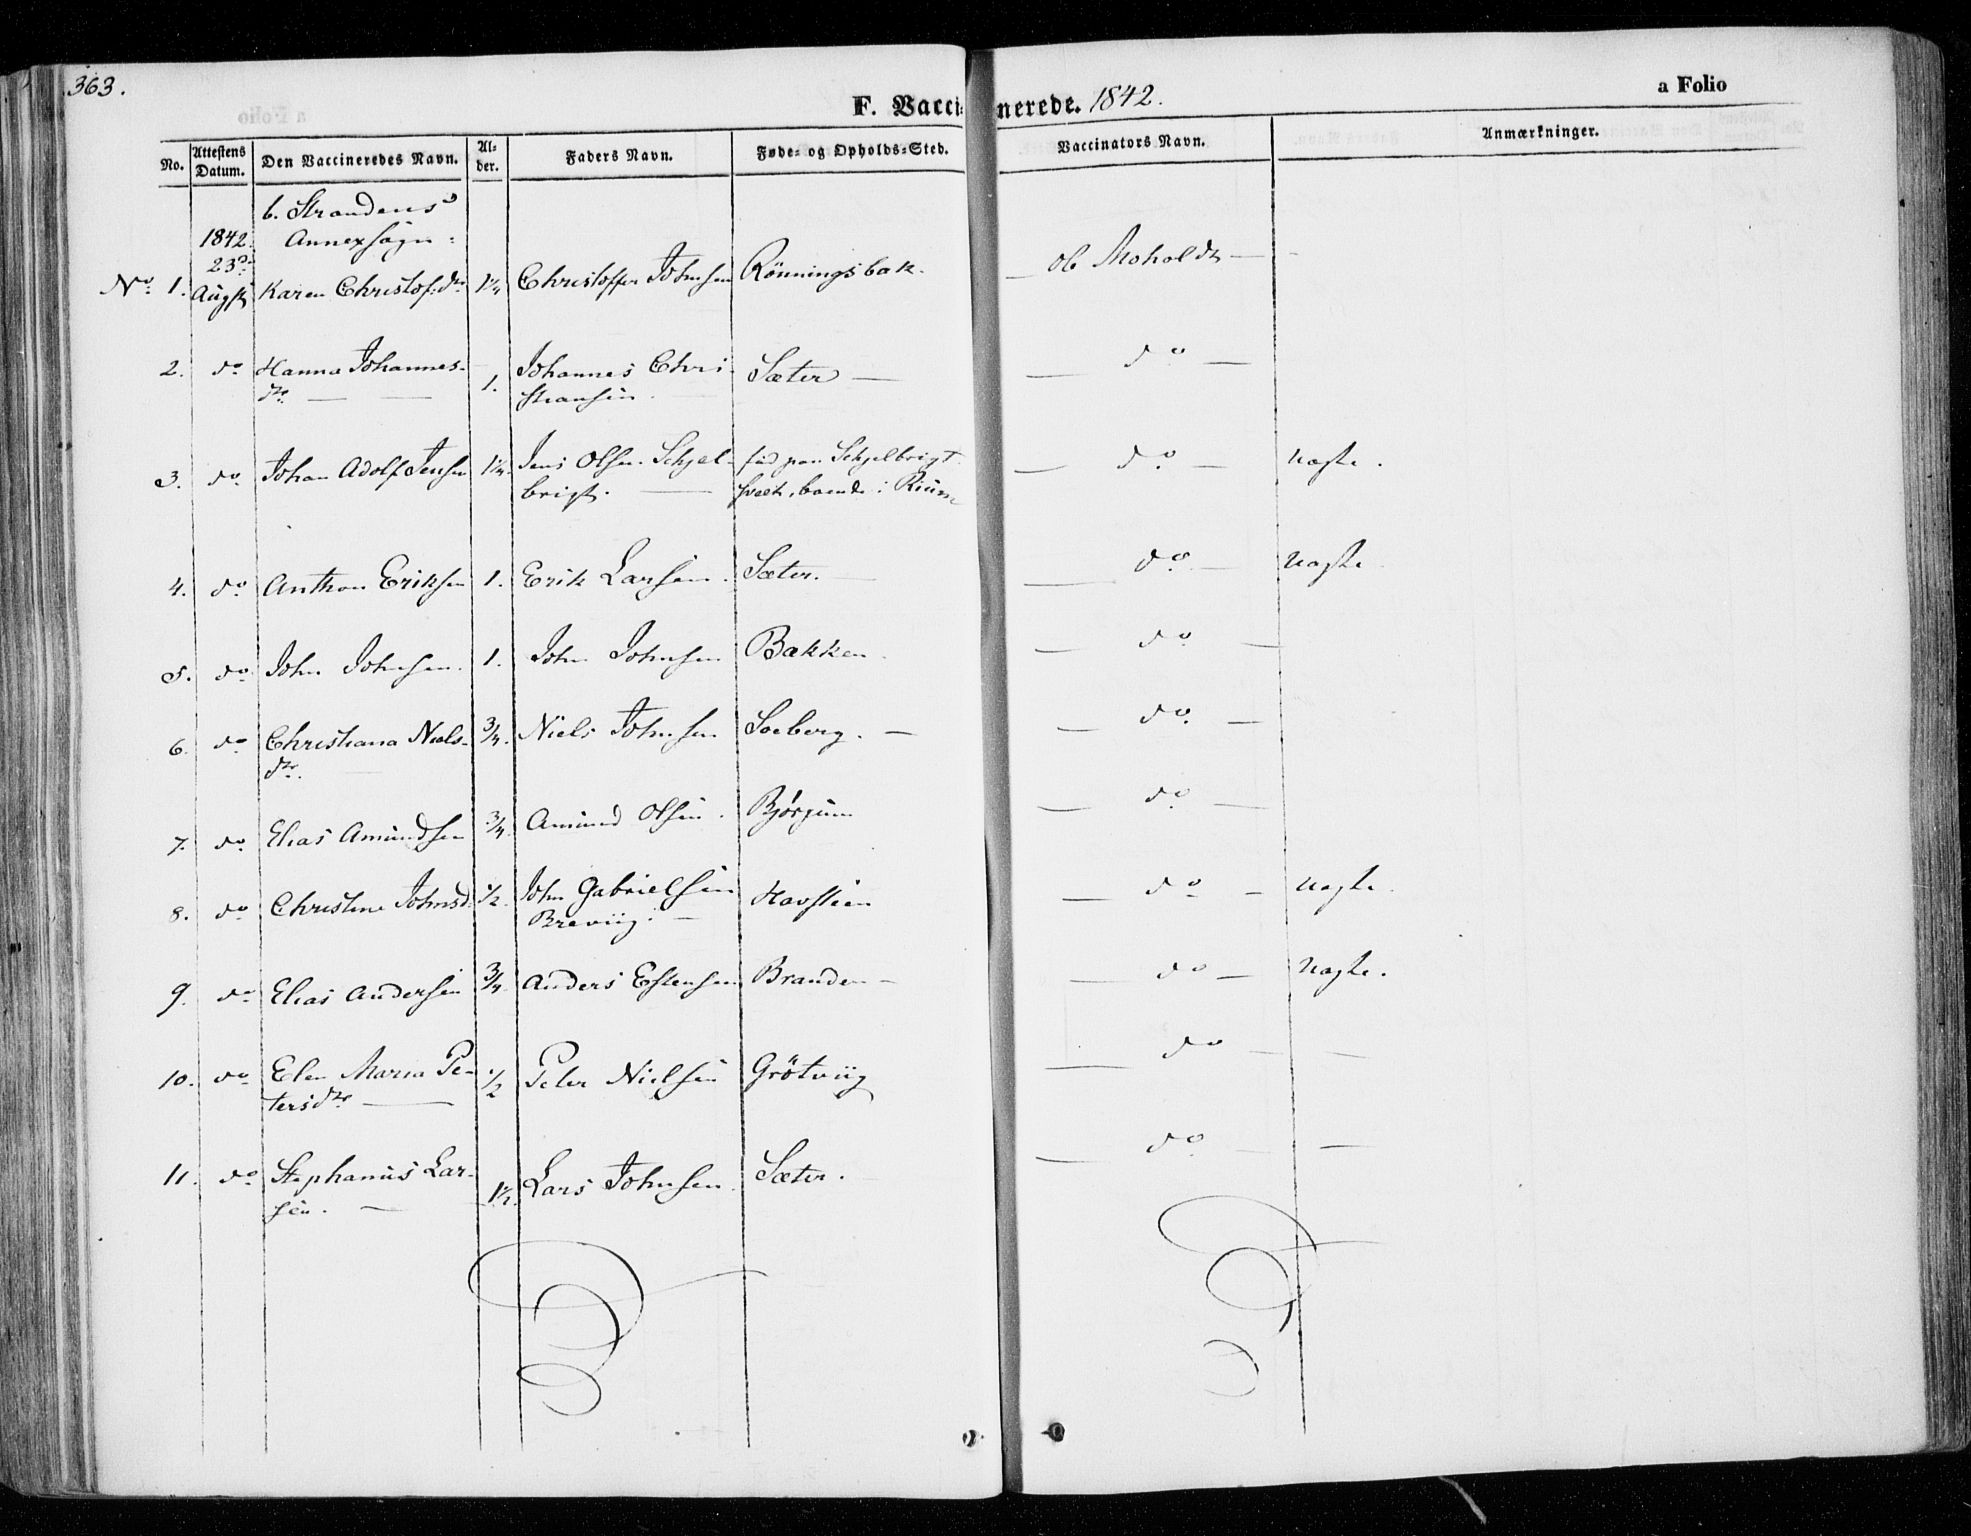 363.
F. Vaccinerede. 1842.
a Folio
No. Attestens Datum. Den Vaccineredes Navn. Alder. Faders Navn. Føde- og Opholds-Sted. Vaccinators Navn. Anmærkninger.
b. Strandens
1842. Annexsogn:
23de
No. 1. Augst Karen Christof.dr. 1 1/4 Christoffer Johnsen Rönningsbak. — Moholdt —
2. do Hanna Johannes- 1. Johannes Chri- Sæter — — do —
dr. — — stiansen.
3. do Johan Adolf Jensen 1 1/4. Jens Olsen Schjel- Schjelbrigt — do — uægte.
brigt. — boende i
4. do Anthon Eriksen 1. Erik Larsen. Sæter. — do — uægte
5. do John Johnsen. 1. John Johnsen Bakken. — do —
6. do Christiana Niels- 3/4. Niels Johnsen Soeberg. — — do —
dr.
7. do Elias Amundsen 3/4. Amund Olsen. — do —
8. do Christine Johnsd. 1/2. John Gabrielsen Havstein — do — uægte.
Breviig. —
9. do Elias Andersen 3/4. Anders Estensen Branden — — do — uægte.
10. do Elen Maria Pe- 1/2 Peter Nielsen Grötviig — do — —
tersdr. —
11. do Stephanus Lar- 1 1/2. Lars Johnsen. Sæter. — do — —
sen. —